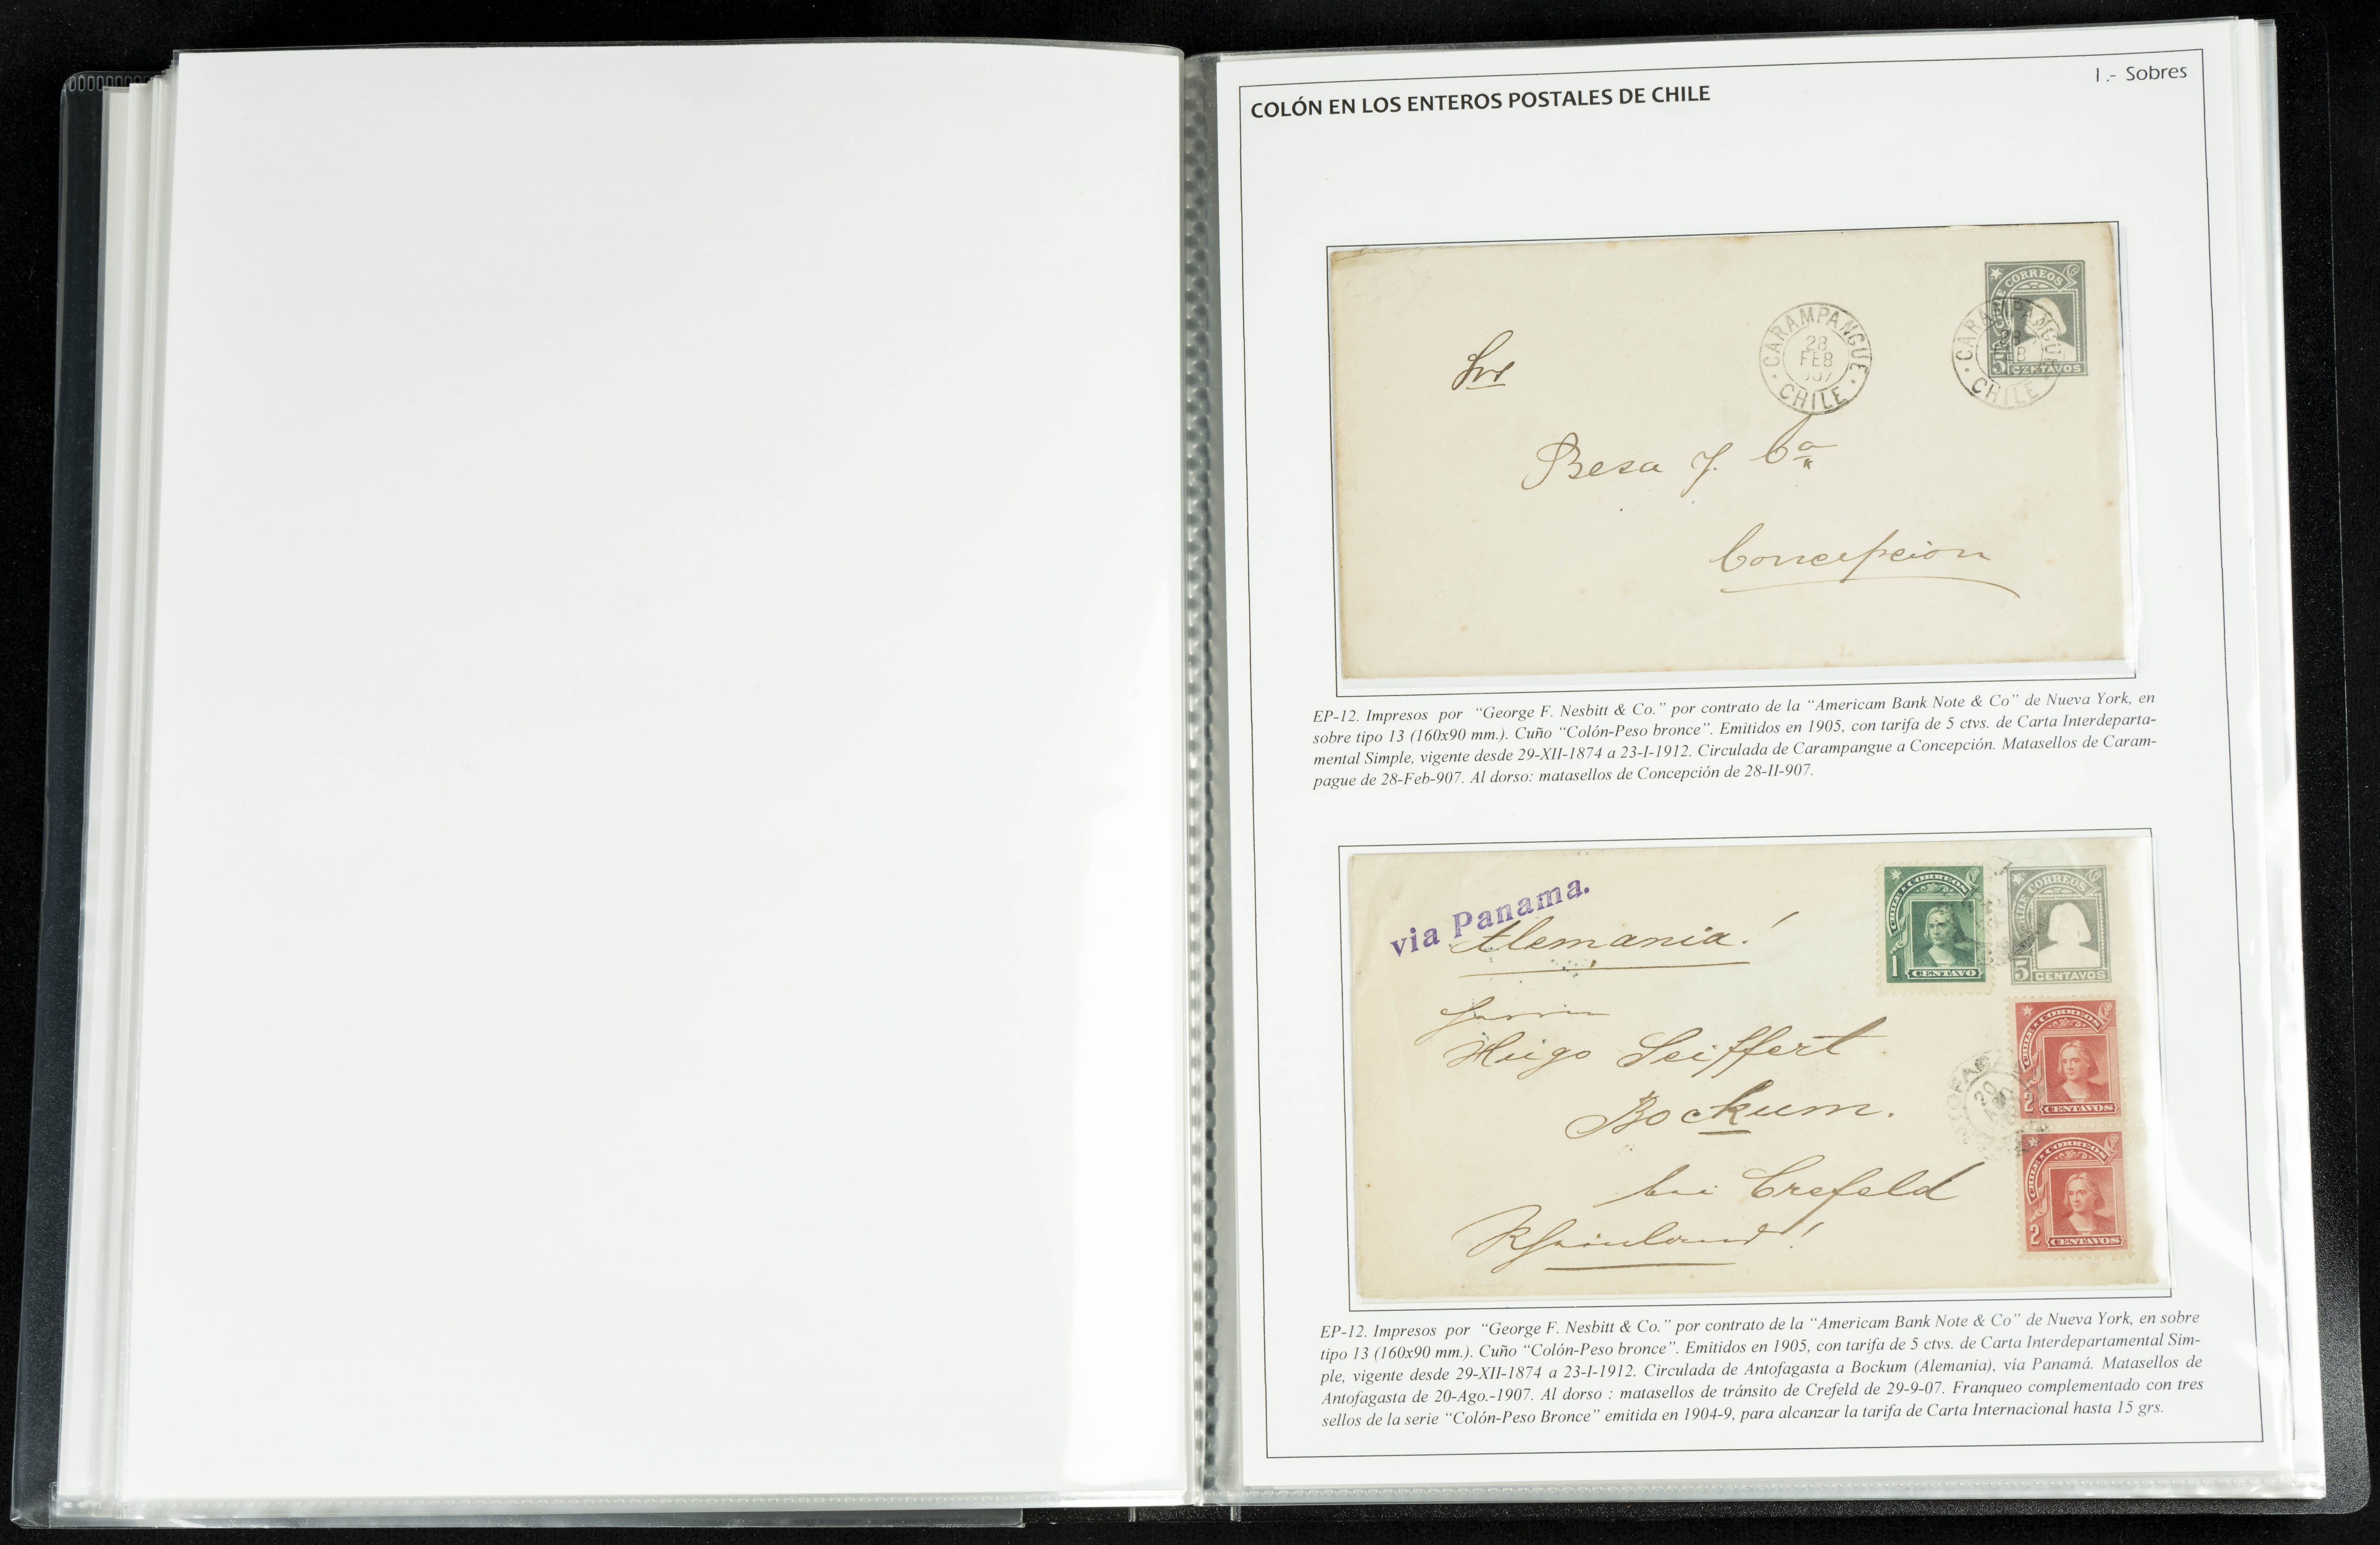 I.- Sobres
COLÓN EN LOS ENTEROS POSTALES DE CHILE
CHILE CORREOS
5 CENTAVOS
CARAMPANGUE
28
FEB
907
CHILE
CARAMPANGUE
28
FEB
CHILE
Sres
Besa y Ca
Concepcion
EP-12. Impresos por “George F. Nesbitt & Co.” por contrato de la “Americam Bank Note & Co” de Nueva York, en
sobre tipo 13 (160x90 mm.). Cuño “Colón-Peso bronce”. Emitidos en 1905, con tarifa de 5 ctvs. de Carta Interdeparta-
mental Simple, vigente desde 29-XII-1874 a 23-I-1912. Circulada de Carampangue a Concepción. Matasellos de Caram-
pague de 28-Feb-907. Al dorso: matasellos de Concepción de 28-II-907.
via Panama.
Alemania!
Herrn
Hugo Seiffert
Bockum.
bei Crefeld
Rheinland!
CHILE CORREOS
1 CENTAVO
CHILE CORREOS
5 CENTAVOS
CHILE CORREOS
2 CENTAVOS
CHILE CORREOS
2 CENTAVOS
20
AGO
EP-12. Impresos por “George F. Nesbitt & Co.” por contrato de la “Americam Bank Note & Co” de Nueva York, en sobre
tipo 13 (160x90 mm.). Cuño “Colón-Peso bronce”. Emitidos en 1905, con tarifa de 5 ctvs. de Carta Interdepartamental Sim-
ple, vigente desde 29-XII-1874 a 23-I-1912. Circulada de Antofagasta a Bockum (Alemania), vía Panamá. Matasellos de
Antofagasta de 20-Ago.-1907. Al dorso : matasellos de tránsito de Crefeld de 29-9-07. Franqueo complementado con tres
sellos de la serie “Colón-Peso Bronce” emitida en 1904-9, para alcanzar la tarifa de Carta Internacional hasta 15 grs.